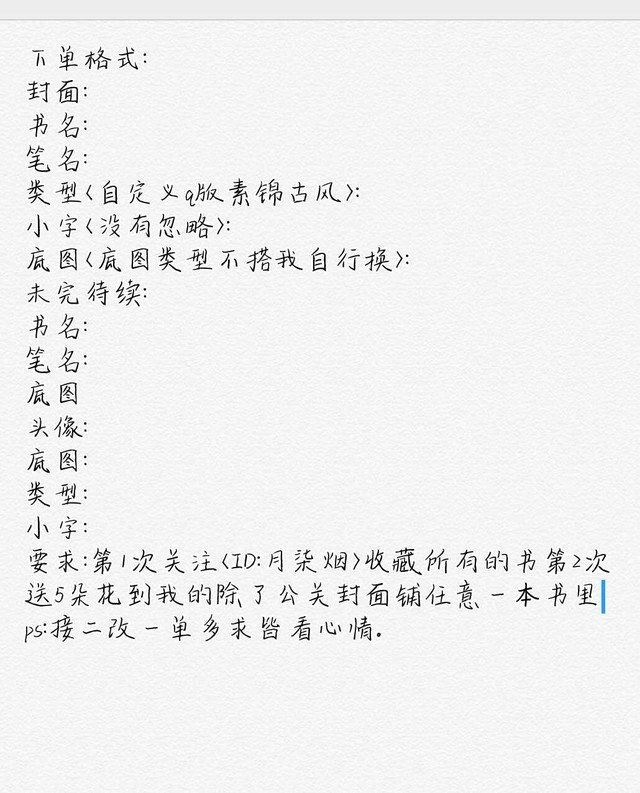 下单格式:
封面:
书名:
笔名:
类型<自定义q版素锦古风>:
小字<没有忽略>:
底图<底图类型不搭我自行换>:
未完待续:
书名:
笔名:
底图
头像:
底图:
类型:
小字:
要求:第1次关注<ID:月染烟>收藏所有的书第2次
送5朵花到我的除了公关封面铺任意一本书里
ps:接二改一单多求皆看心情.